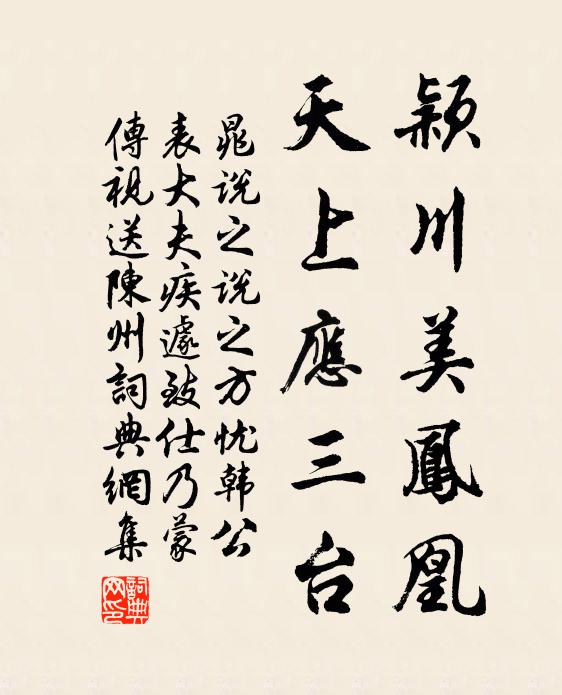 穎川美鳳凰
天上應三台
晁說之說之方忧韓公
表大夫疾遽致仕乃蒙
傳視送陳州詞典網集
詞典網印